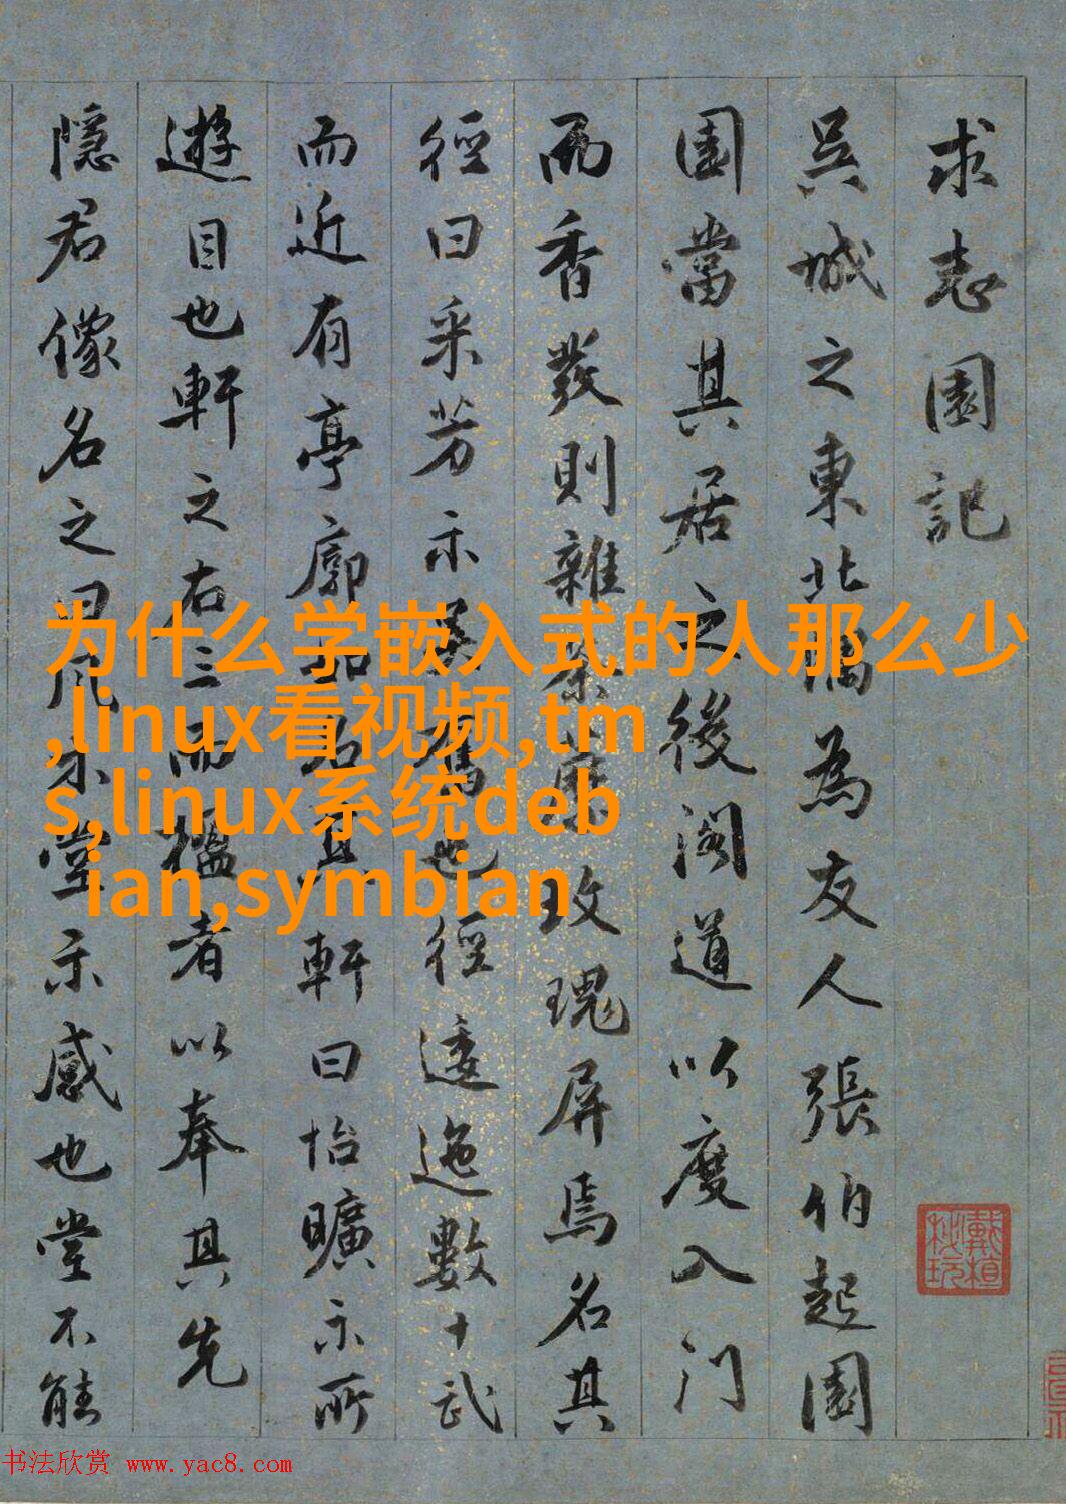 求志園記
吳城之東北隅為友人張伯起園
園當其居之後閣道以度入門
而香發則雜荼玫瑰屏焉名其
徑曰采芳示舊也徑逶迤數十武
而近有亭廓如其軒曰怡曠示所
遊目也軒之右三而楹者以奉其先
隱君像名之曰風木堂示感也堂不能
为什么学嵌入式的人那么少
,linux看视频,tm
s,linux系统deb
ian,symbian
书法欣赏 www.yac8.com